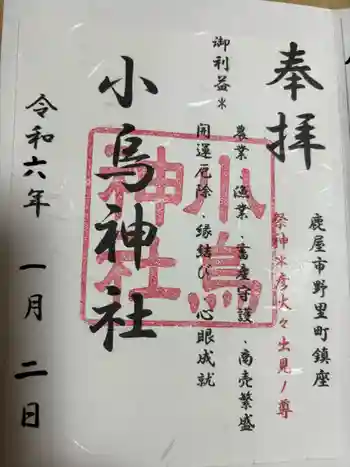 奉拝
鹿屋市野里町鎮座
祭神※彦火々出見ノ尊
御利益※
農業、漁業、畜産守護、商売繁盛
開運厄除、縁結び、心眼成就
小烏神社
小烏神社
令和六年 一月 二日